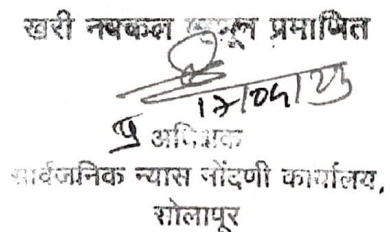 खरी नक्कल म्हणून प्रमाणित
अधिक्षक
सार्वजनिक न्यास नोंदणी कार्यालय,
शोलापूर